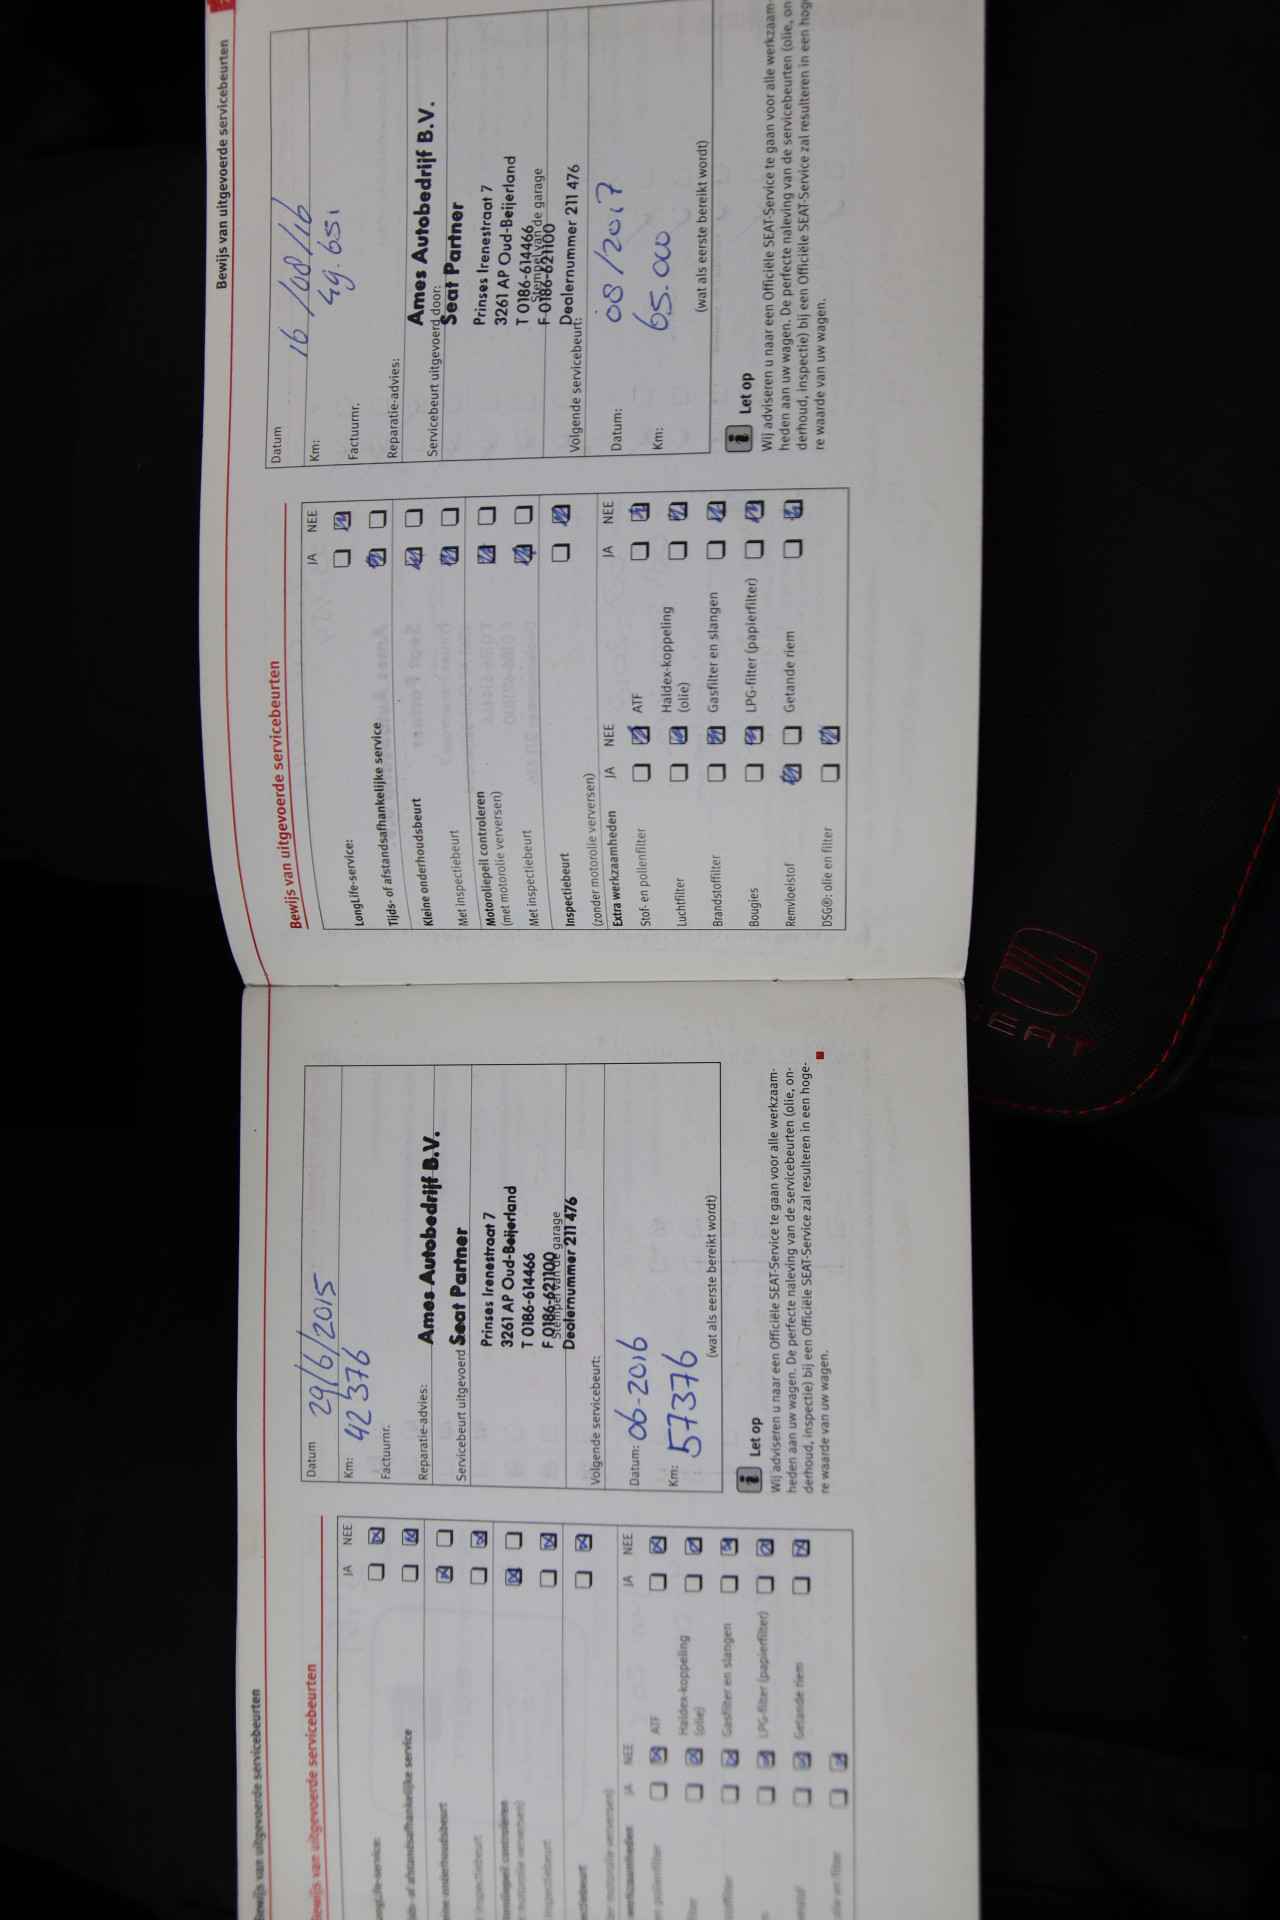 Bewijs van uitgevoerde servicebeurten
Bewijs van uitgevoerde servicebeurten
JA NEE
LongLife-service:
afstandsafhankelijke service
onderhoudsbeurt
inspectiebeurt
controleren
motorolie verversen)
inspectiebeurt
motorolie verversen)
werkzaamheden JA NEE JA NEE
pollenfilter ATF
Haldex-koppeling
(olie)
Gasfilter en slangen
LPG-filter (papierfilter)
Getande riem
olie en filter
Datum 29/6/2015
Km: 42 376
Factuurnr.
Reparatie-advies:
Ames Autobedrijf B.V.
Servicebeurt uitgevoerd Seat Partner
Prinses Irenestraat 7
3261 AP Oud-Beijerland
T 0186-614466
F 0186-621100
Stempel van de garage
Dealernummer 211 476
Volgende servicebeurt:
Datum: 06-2016
Km: 57376
(wat als eerste bereikt wordt)
i Let op
Wij adviseren u naar een Officiële SEAT-Service te gaan voor alle werkzaam-
heden aan uw wagen. De perfecte naleving van de servicebeurten (olie, on-
derhoud, inspectie) bij een Officiële SEAT-Service zal resulteren in een hoge-
re waarde van uw wagen.
Bewijs van uitgevoerde servicebeurten
Bewijs van uitgevoerde servicebeurten
JA NEE
LongLife-service:
Tijds- of afstandsafhankelijke service
Kleine onderhoudsbeurt
Met inspectiebeurt
Motoroliepeil controleren
(met motorolie verversen)
Met inspectiebeurt
Inspectiebeurt
(zonder motorolie verversen)
Extra werkzaamheden JA NEE JA NEE
Stof- en pollenfilter ATF
Luchtfilter Haldex-koppeling
(olie)
Brandstoffilter Gasfilter en slangen
Bougies LPG-filter (papierfilter)
Remvloeistof Getande riem
DSG®: olie en filter
Datum 16/08/16
Km: 49.651
Factuurnr.
Reparatie-advies:
Ames Autobedrijf B.V.
Servicebeurt uitgevoerd door:
Seat Partner
Prinses Irenestraat 7
3261 AP Oud-Beijerland
T 0186-614466
Stempel van de garage
F 0186-621100
Dealernummer 211 476
Volgende servicebeurt:
Datum: 08/2017
Km: 65.000
(wat als eerste bereikt wordt)
i Let op
Wij adviseren u naar een Officiële SEAT-Service te gaan voor alle werkzaam-
heden aan uw wagen. De perfecte naleving van de servicebeurten (olie, on-
derhoud, inspectie) bij een Officiële SEAT-Service zal resulteren in een hoge-
re waarde van uw wagen.
SEAT